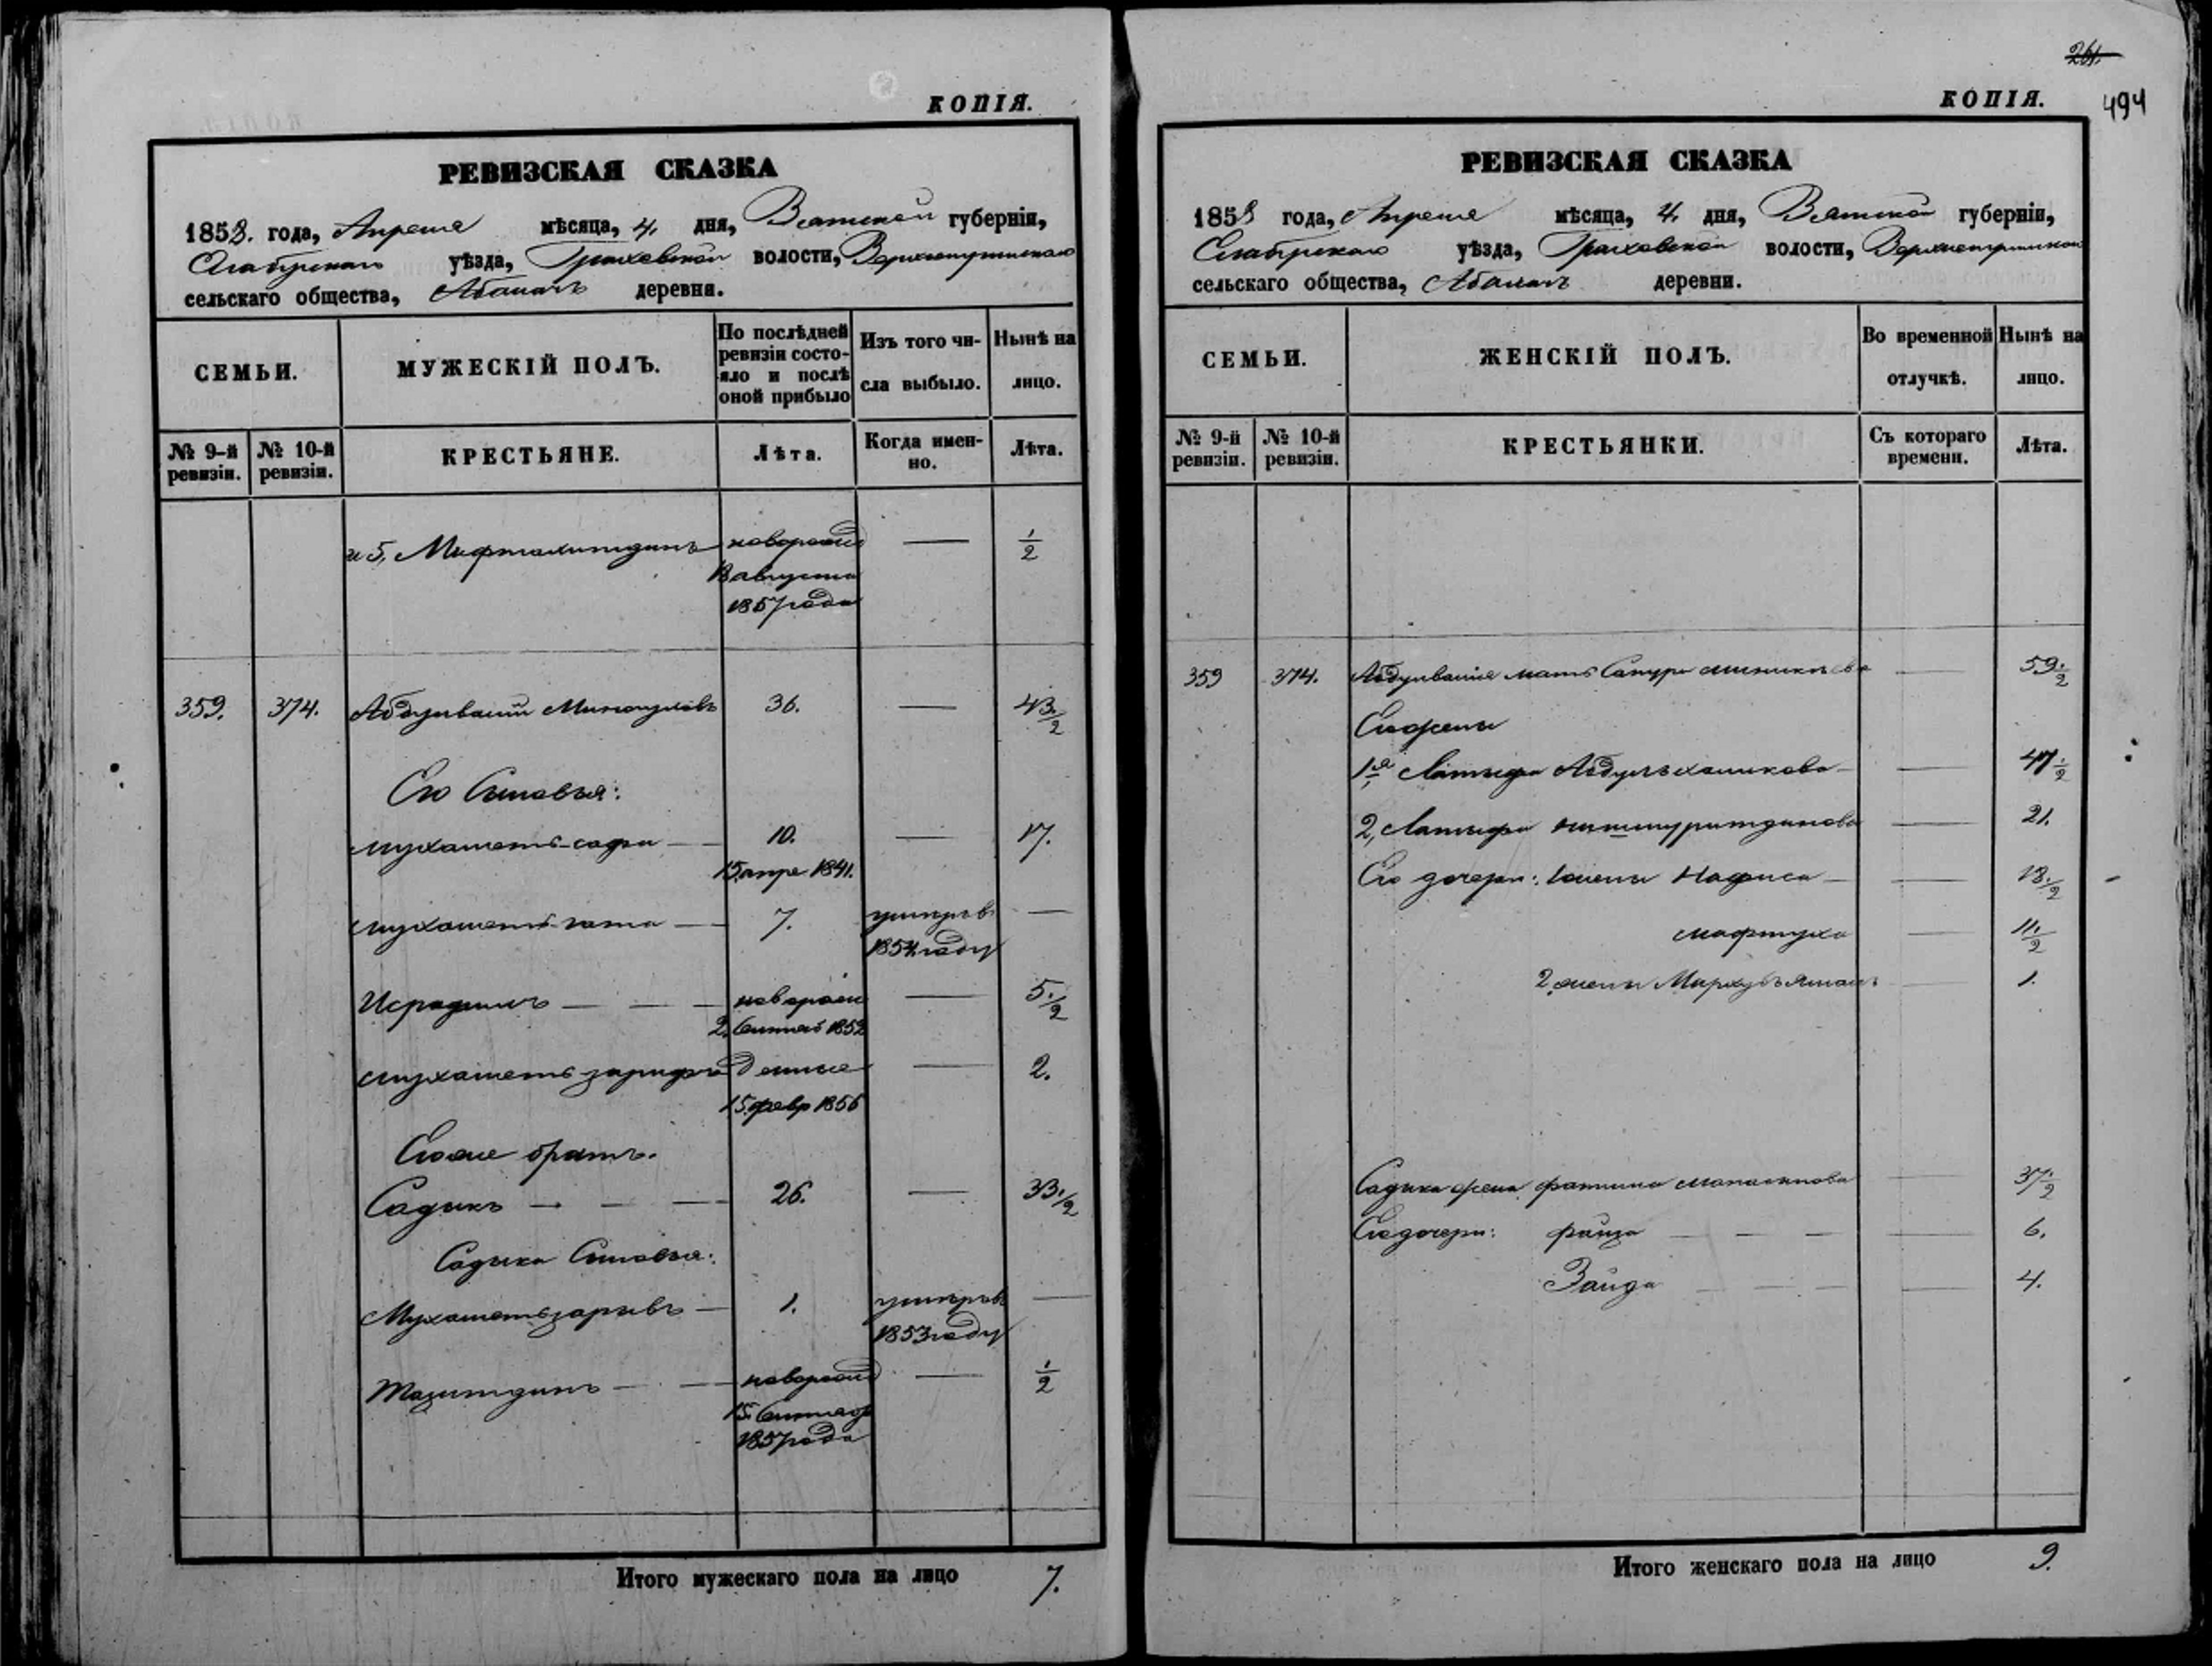 КОПІЯ.
РЕВИЗСКАЯ СКАЗКА
1858. года, Апреля мѣсяца, 4. дня, Вятской губерніи,
Елабужскаго уѣзда, Граховской волости,
сельскаго общества, деревни.
СЕМЬИ.
МУЖЕСКІЙ ПОЛЪ.
По послѣдней ревизіи состо-
яло и послѣ оной прибыло
Изъ того чи-
сла выбыло.
Нынѣ на
лицо.
№ 9-й ревизіи.
№ 10-й ревизіи.
КРЕСТЬЯНЕ.
Лѣта.
Когда имен-
но.
Лѣта.
и 5, Мифтахитдинъ новорожд — ½
августа
1857 года
359. 374. Абдулвалій 36. — 43.½
Его Сыновья:
мухаметъ-сафа — 10. — 17.
15 апре 1841.
мухаметъ-гата — 7. умеръ в —
1854 году
Исрафилъ — — — новорожд — 5.½
2. Сентяб 1852
мухаметъ-зарифъ денные — 2.
15 февр 1856
Его же братъ.
Садыкъ — — — 26. — 33.½
Садыка Сыновья:
Мухаметзарывъ — 1. умеръ в —
1853 году
Тазитдинъ — — новорожд — ½
15. Сентяб
1857 года
Итого мужескаго пола на лицо 7.
261.
494
КОПІЯ.
РЕВИЗСКАЯ СКАЗКА
1858 года, Апреля мѣсяца, 4. дня, Вятской губерніи,
Елабужскаго уѣзда, Граховской волости,
сельскаго общества, деревни.
СЕМЬИ.
ЖЕНСКІЙ ПОЛЪ.
Во временной
отлучкѣ.
Нынѣ на
лицо.
№ 9-й ревизіи.
№ 10-й ревизіи.
КРЕСТЬЯНКИ.
Съ котораго
времени.
Лѣта.
359 374. мать — 59.½
Его жены
1я Латыфа — 47.½
2, Латыфа — 21.
Его дочери: 1 жены Нафиса — 18.½
мафтуха — 11.½
2 жены — 1.
Садыка жена фатима — 37.½
Его дочери: фаиза — — — — 6.
Заида — — — — 4.
Итого женскаго пола на лицо 9.